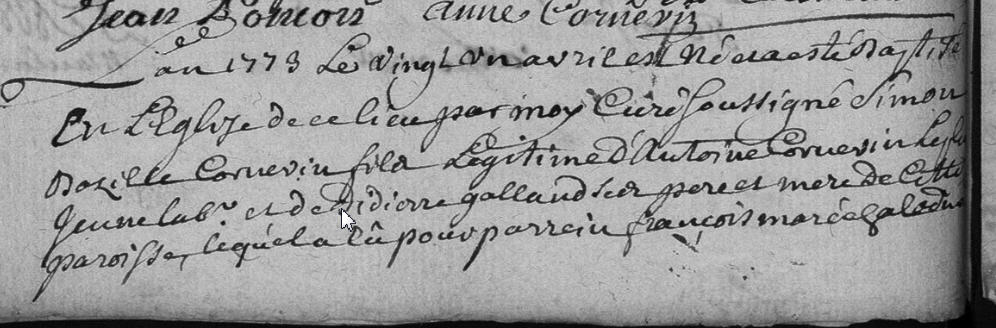 Jean Poinçon Anne Cornevin
an 1773 Le vingt un avril est Né et a esté Baptisé
En L'Eglize de ce lieu par moy Curé soussigné Simon
Bazille Cornevin fils Legitime d'Antoine Cornevin le plus
Jeune labr. et de Didierre galland ses pere et mere de Cette
paroisse, lequel a Eû pour parrein françois maréchal de